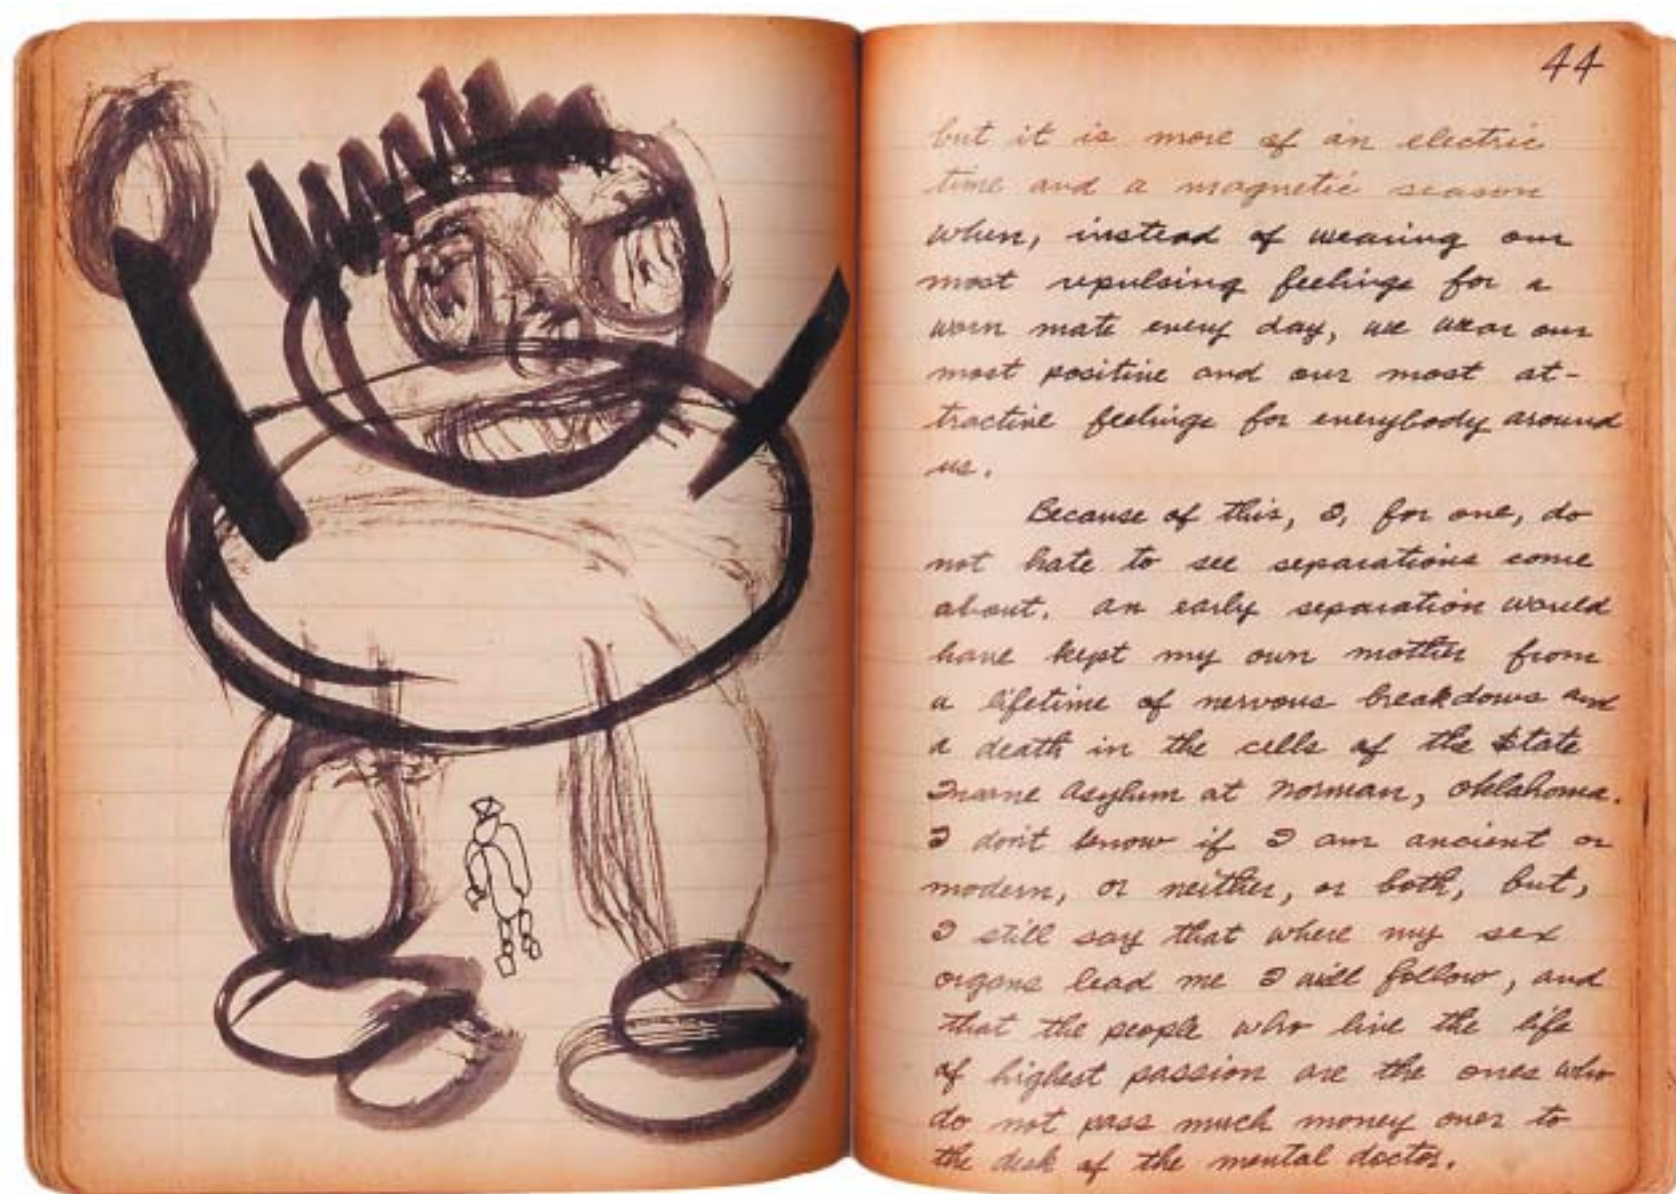 44
but it is more of an electric
time and a magnetic season
when, instead of wearing our
most repulsing feelings for a
worn mate every day, we wear our
most positive and our most at-
tractive feelings for everybody around
us.
Because of this, I, for one, do
not hate to see separations come
about. An early separation would
have kept my own mother from
a lifetime of nervous breakdowns and
a death in the cells of the State
Insane Asylum at Norman, Oklahoma.
I don't know if I am ancient or
modern, or neither, or both, but,
I still say that where my sex
organs lead me I will follow, and
that the people who live the life
of highest passion are the ones who
do not pass much money over to
the desk of the mental doctor.